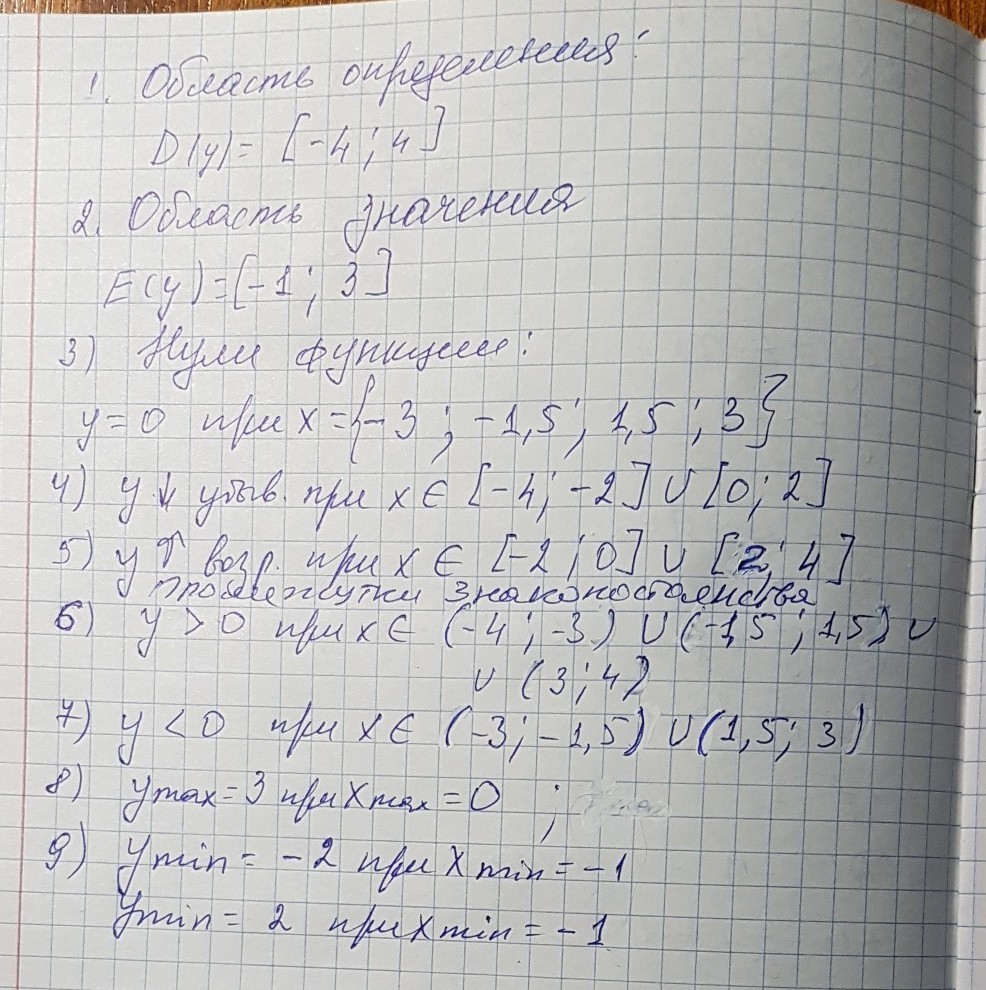 1. Область определения:
D(y)= [-4; 4]
2. Область значения
E(y)=[-1; 3]
3) Нули функции:
y=0 при x={-3; -1,5; 1,5; 3}
4) y↓ убыв. при x∈ [-4; -2] ∪ [0; 2]
5) y↑ возр. при x ∈ [-2; 0] ∪ [2; 4]
Промежутки знакопостоянства
6) y > 0 при x∈ (-4; -3) ∪ (-1,5; 1,5) ∪
∪ (3; 4)
7) y < 0 при x∈ (-3; -1,5) ∪ (1,5; 3)
8) ymax = 3 при xmax = 0 ;
9) ymin = -2 при xmin = -1
ymin = 2 при xmin = -1